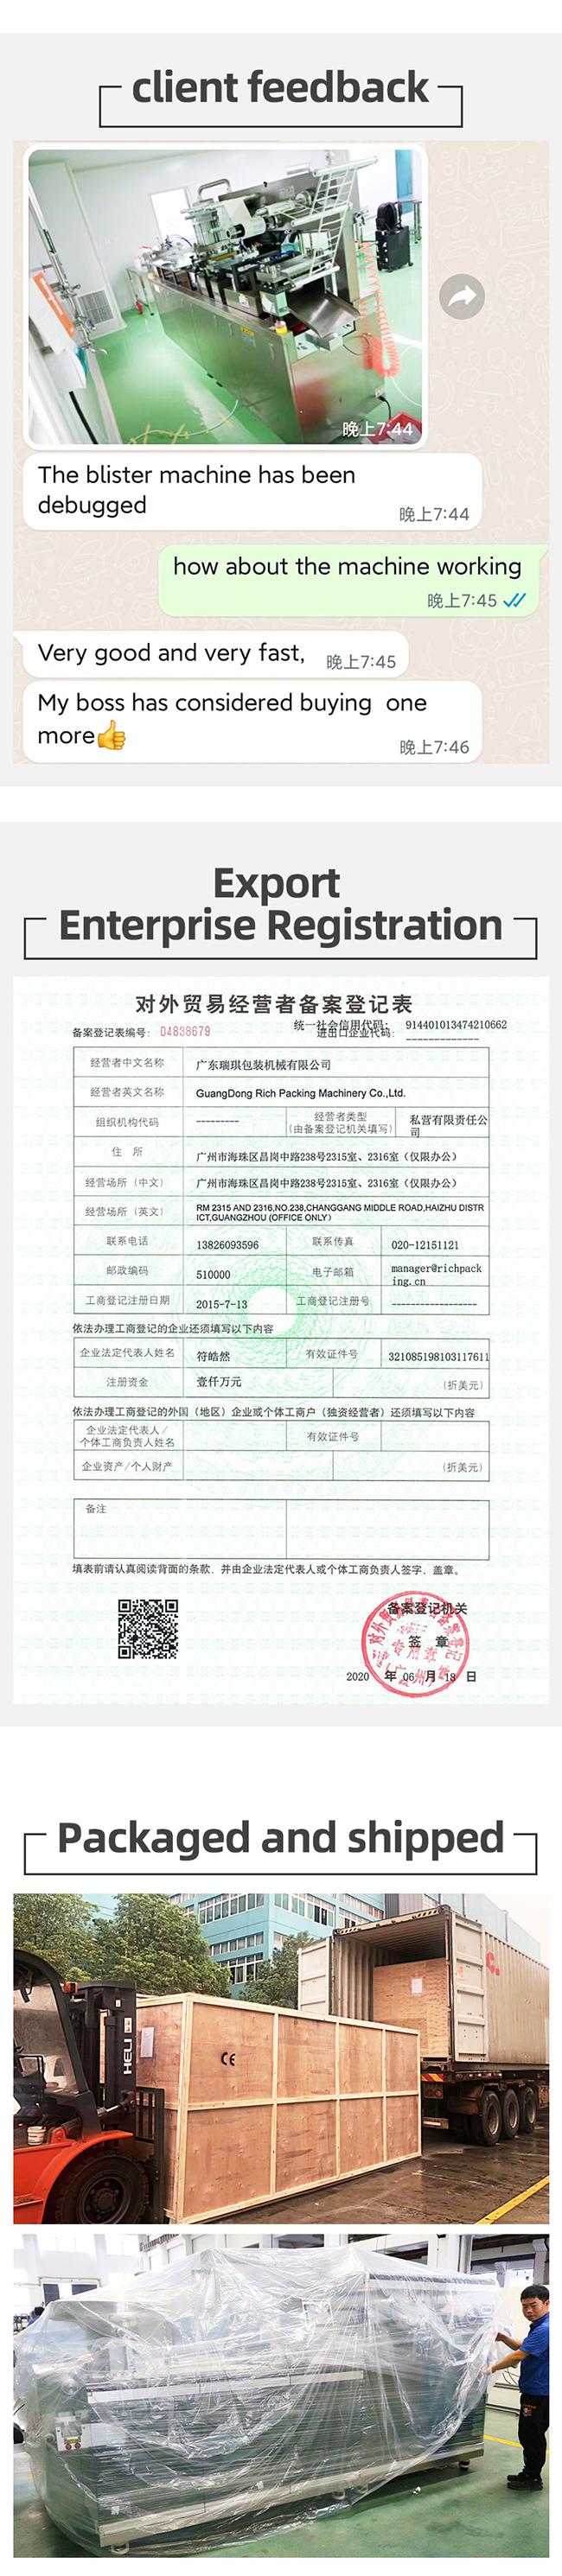 client feedback
晚上7:44
The blister machine has been
debugged
晚上7:44
how about the machine working
晚上7:45
Very good and very fast,
晚上7:45
My boss has considered buying one
more👍
晚上7:46
Export
Enterprise Registration
对外贸易经营者备案登记表
统一社会信用代码: 914401013474210662
备案登记表编号: 04838679
进出口企业代码: -------------
经营者中文名称 广东瑞琪包装机械有限公司
经营者英文名称 GuangDong Rich Packing Machinery Co.,Ltd.
组织机构代码 --------- 经营者类型
(由备案登记机关填写) 私营有限责任公
司
住 所 广州市海珠区昌岗中路238号2315室、2316室（仅限办公）
经营场所（中文） 广州市海珠区昌岗中路238号2315室、2316室（仅限办公）
经营场所（英文） RM 2315 AND 2316,NO.238,CHANGGANG MIDDLE ROAD,HAIZHU DISTR
ICT,GUANGZHOU (OFFICE ONLY)
联系电话 13826093596 联系传真 020-12151121
邮政编码 510000 电子邮箱 manager@richpack
ing.cn
工商登记注册日期 2015-7-13 工商登记注册号 -----------------
依法办理工商登记的企业还须填写以下内容
企业法定代表人姓名 符皓然 有效证件号 321085198103117611
注册资金 壹仟万元 (折美元)
依法办理工商登记的外国（地区）企业或个体工商户（独资经营者）还须填写以下内容
企业法定代表人/
个体工商负责人姓名 有效证件号
企业资产/个人财产 (折美元)
备注
填表前请认真阅读背面的条款，并由企业法定代表人或个体工商负责人签字、盖章。
备案登记机关
签 章
2020 年 06 月 18 日
Packaged and shipped
HELI
CE